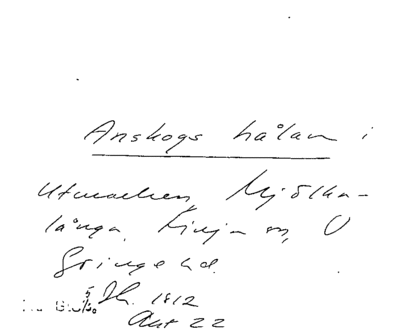 Anskogs hålan i
Utmarken, Mjölka-
långa, Finja sn, V
Göinge hd.
Jh. 1812
Akt 22